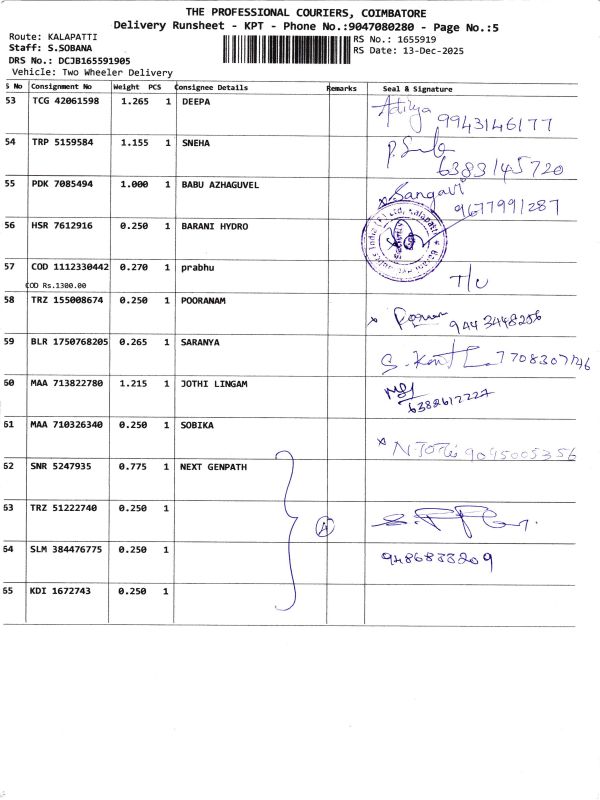 THE PROFESSIONAL COURIERS, COIMBATORE
Delivery Runsheet - KPT - Phone No.:9047080280 - Page No.:5
Route: KALAPATTI
RS No.: 1655919
Staff: S.SOBANA
RS Date: 13-Dec-2025
DRS No.: DCJB165591905
Vehicle: Two Wheeler Delivery
S No Consignment No Weight PCS Consignee Details Remarks Seal & Signature
53 TCG 42061598 1.265 1 DEEPA Aditya 9943146177
54 TRP 5159584 1.155 1 SNEHA 6383145720
55 PDK 7085494 1.000 1 BABU AZHAGUVEL Sangavi 9677991287
56 HSR 7612916 0.250 1 BARANI HYDRO
57 COD 1112330442 0.270 1 prabhu T/U
COD Rs.1300.00
58 TRZ 155008674 0.250 1 POORANAM 9443448256
59 BLR 1750768205 0.265 1 SARANYA 7708307746
60 MAA 713822780 1.215 1 JOTHI LINGAM 6382612227
61 MAA 710326340 0.250 1 SOBIKA 9045005356
62 SNR 5247935 0.775 1 NEXT GENPATH
63 TRZ 51222740 0.250 1 4
64 SLM 384476775 0.250 1 9486833209
65 KDI 1672743 0.250 1